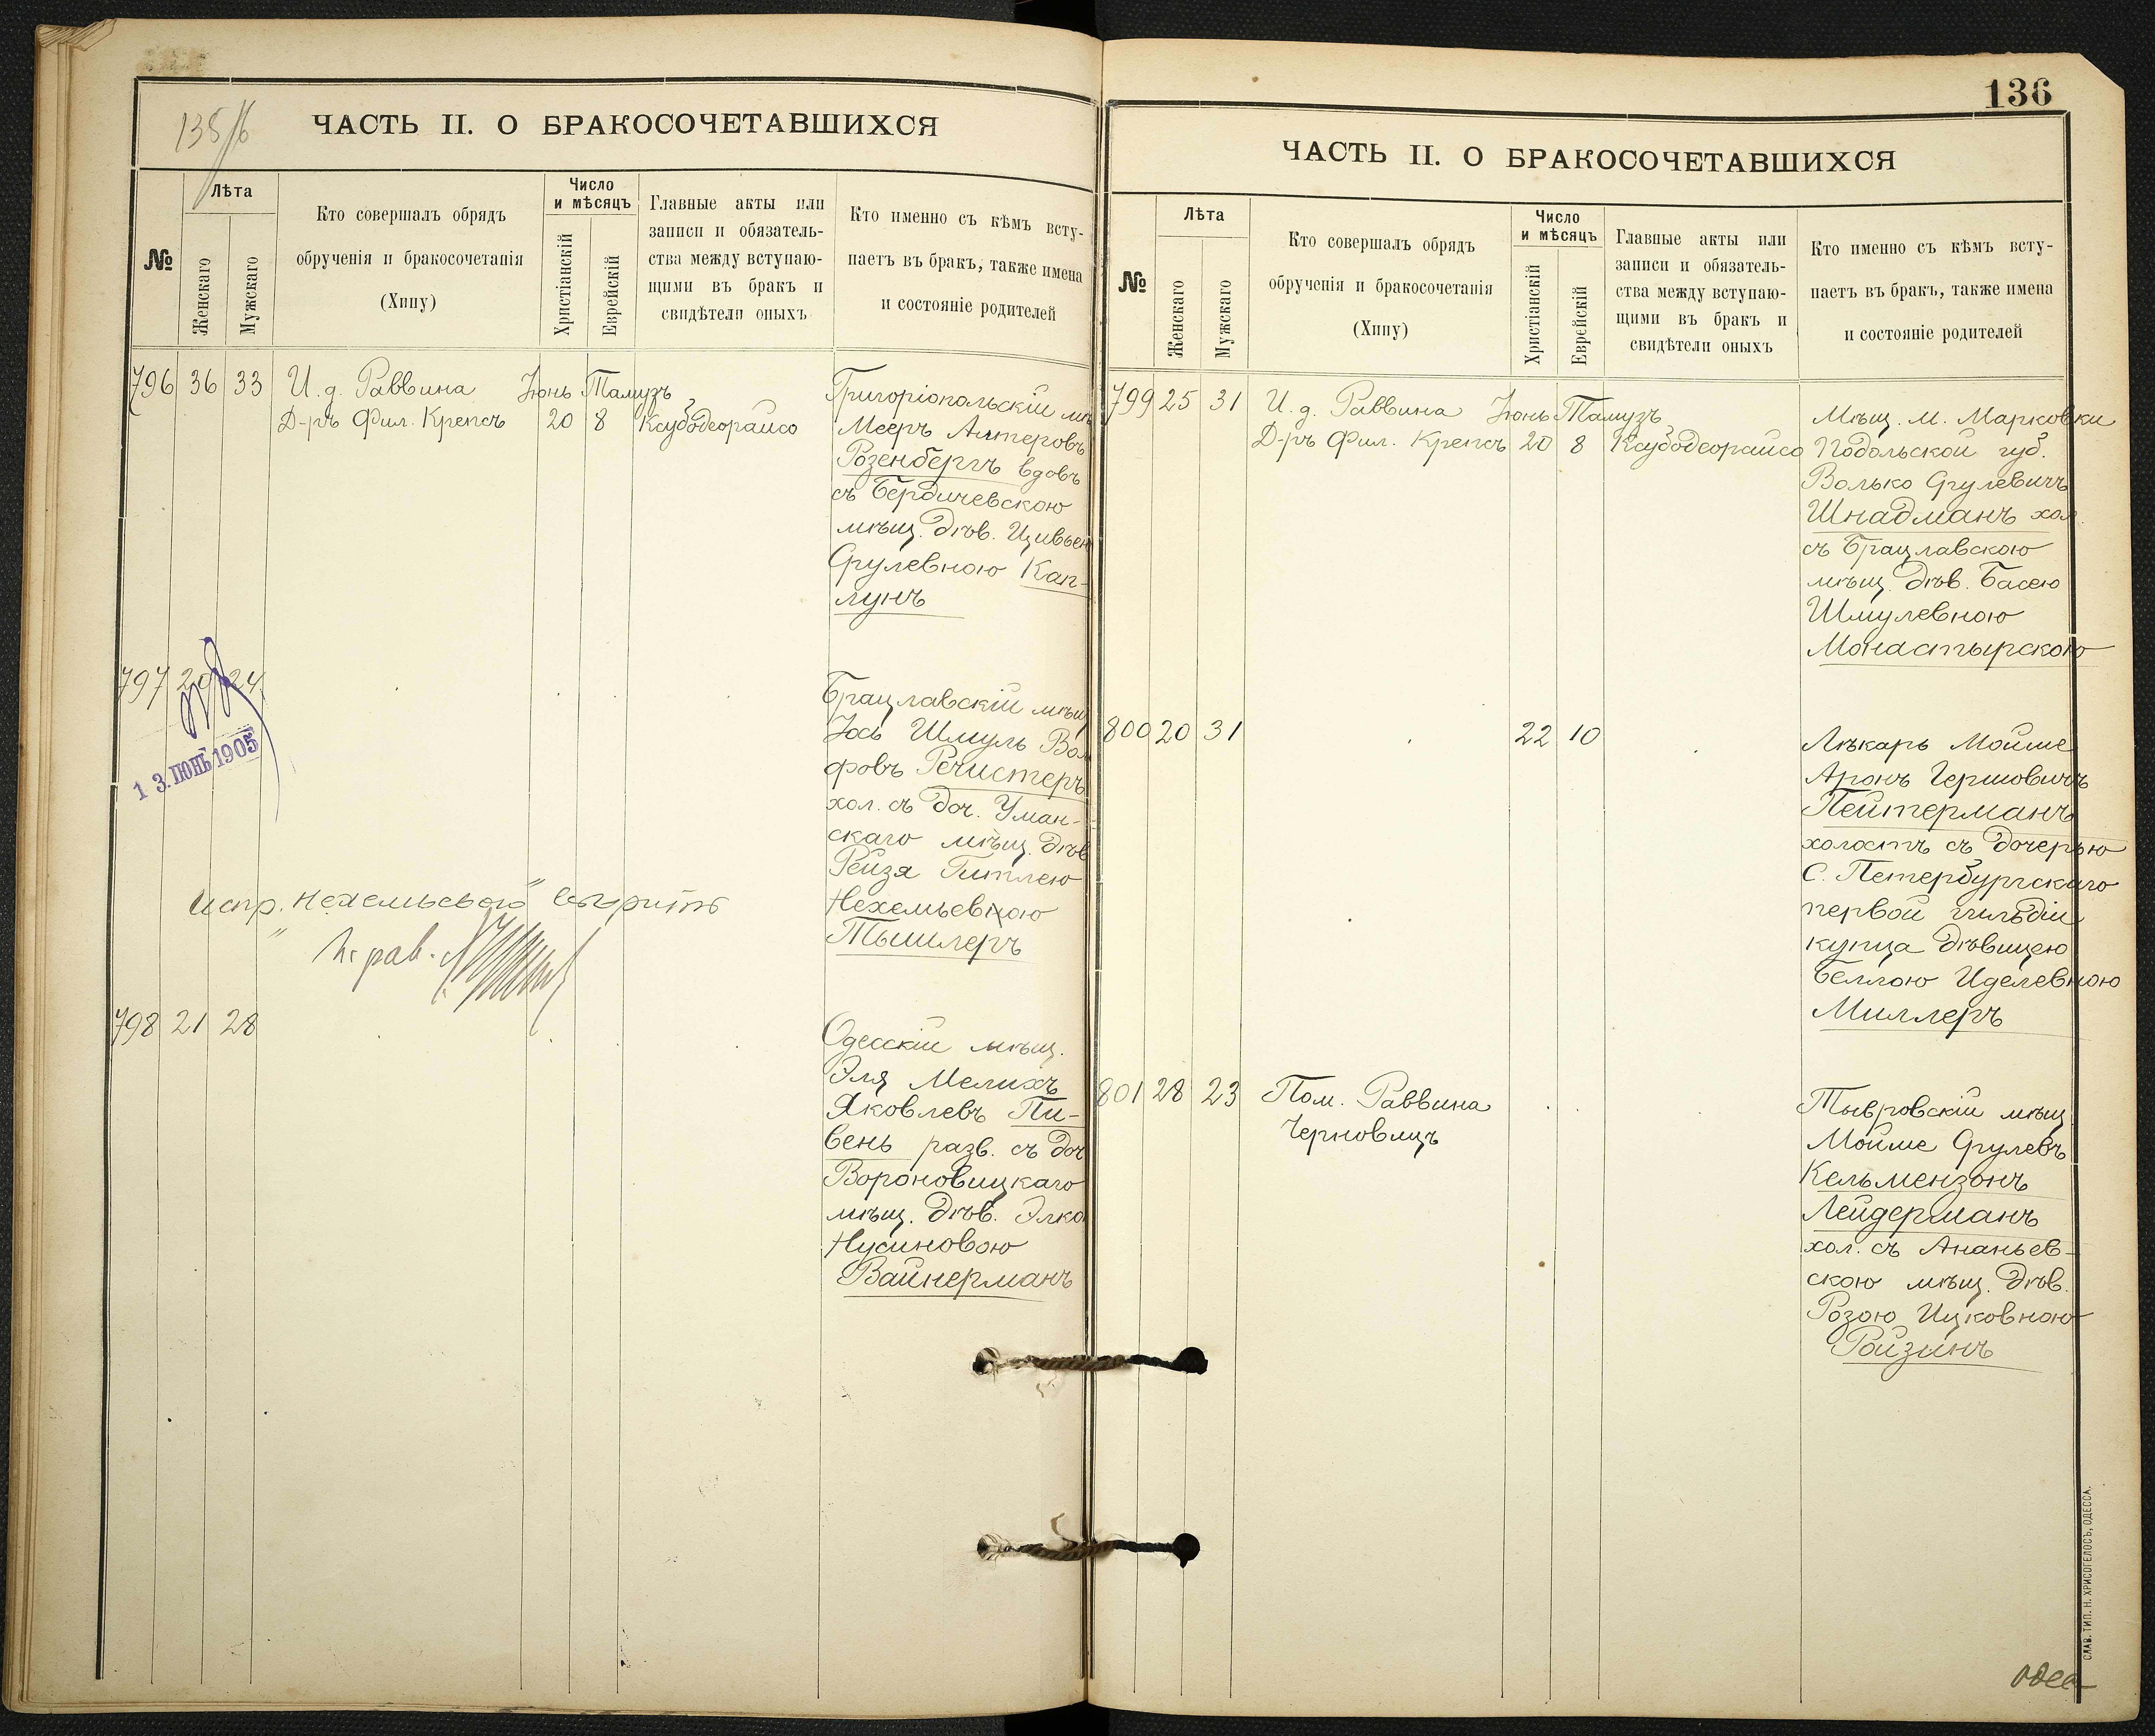 135/6
ЧАСТЬ II. О БРАКОСОЧЕТАВШИХСЯ
№
Лѣта
Женскаго
Мужскаго
Кто совершалъ обрядъ
обрученія и бракосочетанія
(Хипу)
Число
и мѣсяцъ
Христіанскій
Еврейскій
Главные акты или
записи и обязатель-
ства между вступаю-
щими въ бракъ и
свидѣтели оныхъ
Кто именно съ кѣмъ всту-
паетъ въ бракъ, также имена
и состояніе родителей
796 36 33 И. д. Раввина Іюнь Тамузъ
Д-ръ Фил. Крепсъ 20 8 Ксубодеорайсо
Григоріопольскій мѣщ
Мееръ Алтеровъ
Розенбергъ вдовъ
съ Бердичевскою
мѣщ. дѣв. Цивьею
Срулевною Кап-
лунъ
797 20 24
13. ІЮНЬ 1905
Брацлавскій мѣщ
Іось Шмуль Вол
фовъ Речистеръ
хол. съ доч. Уман-
скаго мѣщ. дѣв
Рейзя Гитлею
Нехемьевною
Тышлеръ
испр. "Нехемьевою" вѣрить
798 21 28
Одесскій мѣщ.
Эля Мелихъ
Яковлевъ Пи-
вень разв. съ доч
Вороновицкаго
мѣщ. дѣв. Элко
Нусиновою
Вайнерманъ
136
ЧАСТЬ II. О БРАКОСОЧЕТАВШИХСЯ
№
Лѣта
Женскаго
Мужскаго
Кто совершалъ обрядъ
обрученія и бракосочетанія
(Хипу)
Число
и мѣсяцъ
Христіанскій
Еврейскій
Главные акты или
записи и обязатель-
ства между вступаю-
щими въ бракъ и
свидѣтели оныхъ
Кто именно съ кѣмъ всту-
паетъ въ бракъ, также имена
и состояніе родителей
799 25 31 И. д. Раввина Іюнь Тамузъ
Д-ръ Фил. Крепсъ 20 8 Ксубодеорайсо
Мѣщ. м. Марковки
Подольской губ.
Волько Срулевичъ
Шнадманъ хол.
съ Брацлавскою
мѣщ. дѣв. Басею
Шмулевною
Монастырскою
800 20 31 22 10
Лѣкарь Мойше
Аронъ Гершовичъ
Пейтерманъ
холостъ съ дочерью
С. Петербургскаго
первой гильдіи
купца дѣвицею
Беллою Иделевною
Миллеръ
801 28 23 Пом. Раввина
Черновицъ
Тывровскій мѣщ
Мойше Срулевъ
Кельмензонъ
Лейдерманъ
хол. съ Ананьев-
скою мѣщ. дѣв.
Розою Ицковною
Ройзинъ
СЛАВ. ТИП. Н. ХРИСОГЕЛОСЪ, ОДЕССА.